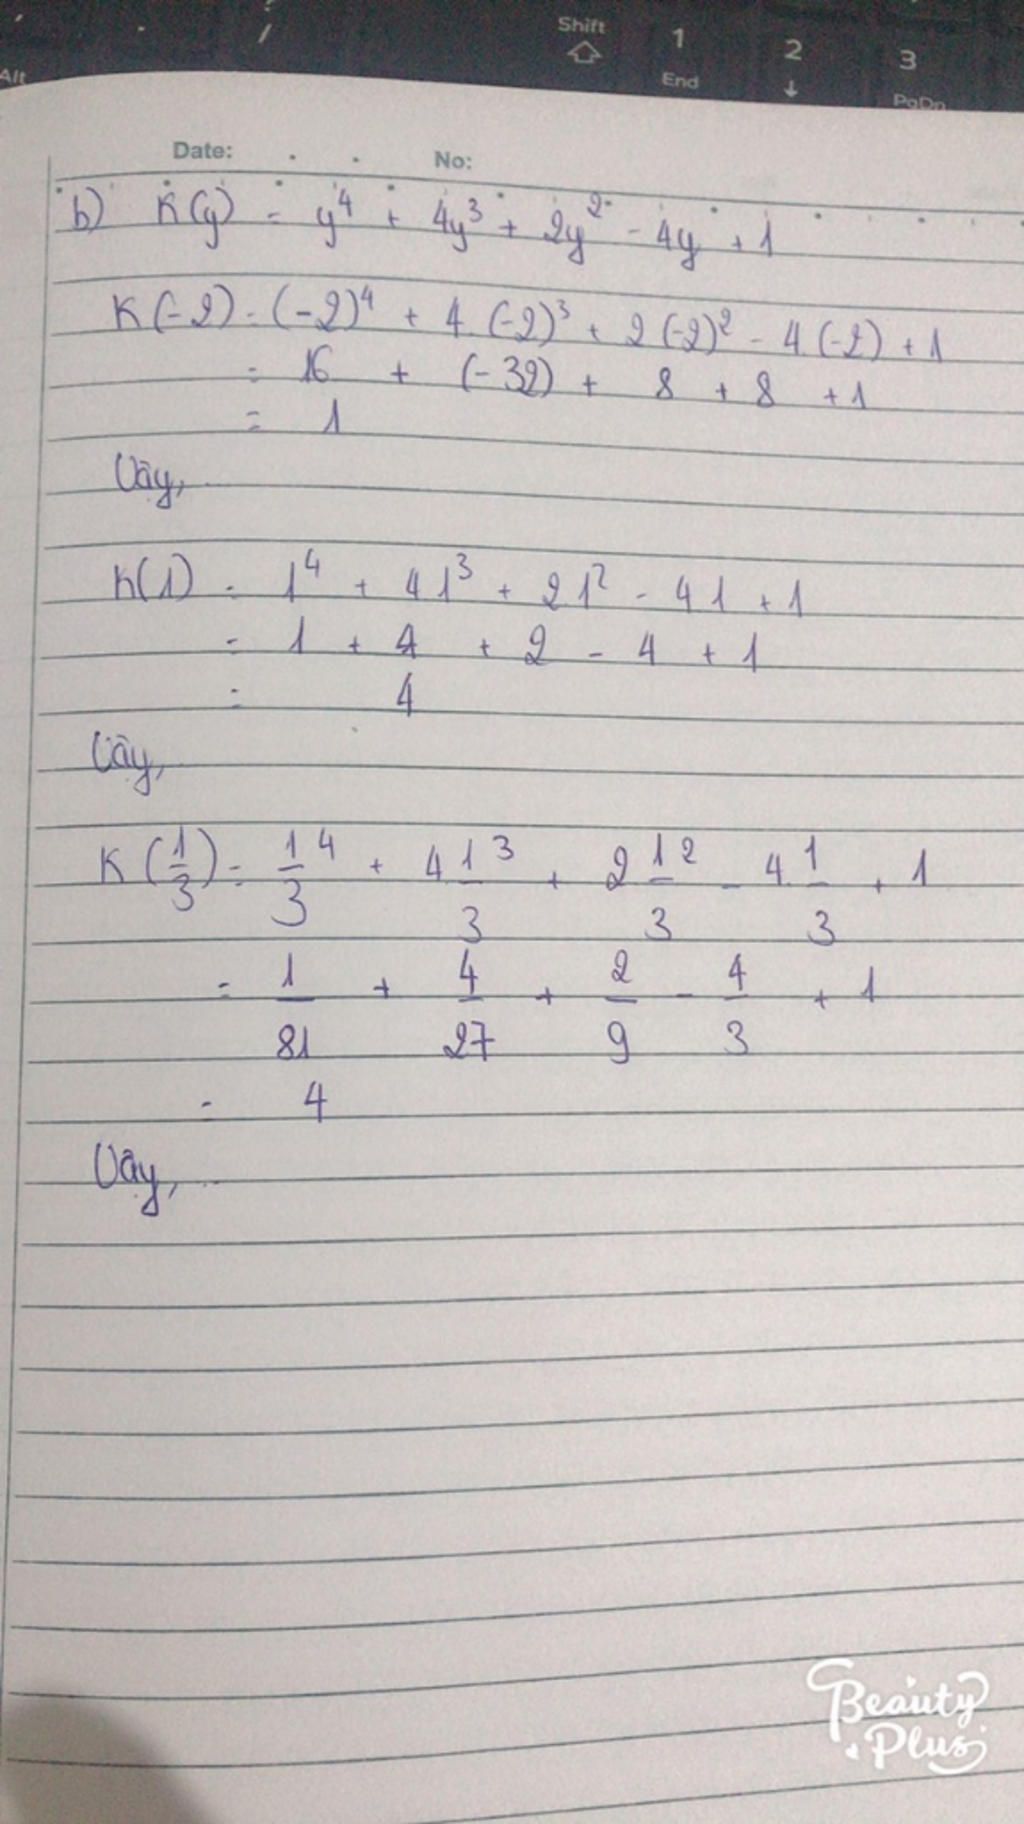 Alt
Shift
1
End
2
↓
3
PgDn
Date: No:
b) K(y) = y⁴ + 4y³ + 2y² - 4y + 1
K(-2) = (-2)⁴ + 4.(-2)³ + 2(-2)² - 4.(-2) + 1
= 16 + (-32) + 8 + 8 + 1
= 1
Vậy, ...
K(1) = 1⁴ + 4 1³ + 2 1² - 4 1 + 1
= 1 + 4 + 2 - 4 + 1
= 4
Vậy, ...
K(1/3) = 1/3⁴ + 4 1/3³ + 2 1/3² - 4. 1/3 + 1
= 1/81 + 4/27 + 2/9 - 4/3 + 1
= 4
Vậy, ...
Beauty
Plus